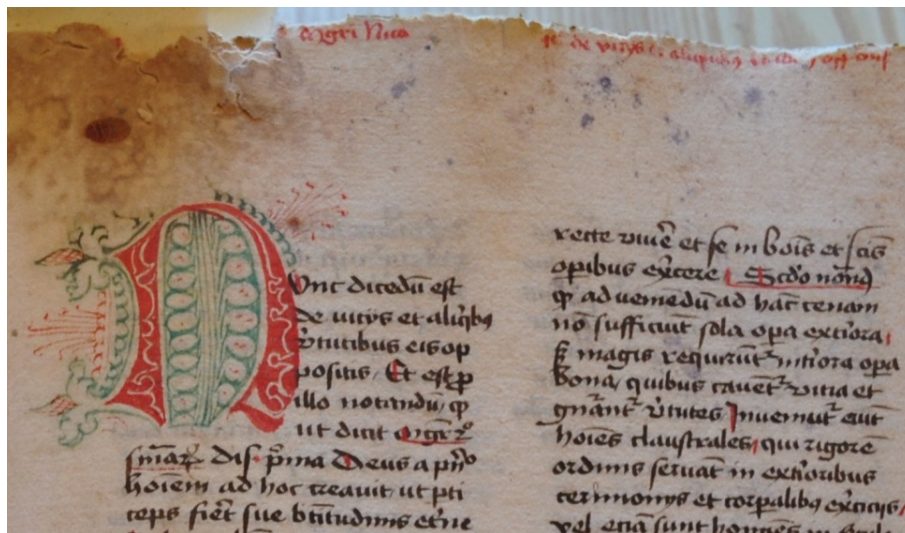 mgri Nico
de vicijs et aliquibus
Nunc dicedū est
de vicijs et aliqibꝯ
v̾tutibus eis op
positis. Et est ꝓ
illo notandū, ꝙ
ut dicit mgr̄
sniar̄ dis. pͥma Deus a pͥnͦ
hoīem ad hoc creauit, ut pti
ceps fier̄et sue btītudinis et̾ne
recte viue᷑ et se in boīs et scīs
opibus ex̾cere Scd̾o nōnd̄
ꝙ ad veniendū ad hāc cenam
nō sufficiūt sola opa exti̾ora,
s̄ magis requirūt᷑ inti̾ora opa
bona, quibus cauent᷑ vitia et
gn̾ant᷑ v̾tutes Inueniūt᷑ eni̅
hoīes claustrales, qui rigorē
ordinis seruāt in exti̾oribus
cerimonijs et corꝑalibꝯ ex̾cicijs,
vel etiā sunt